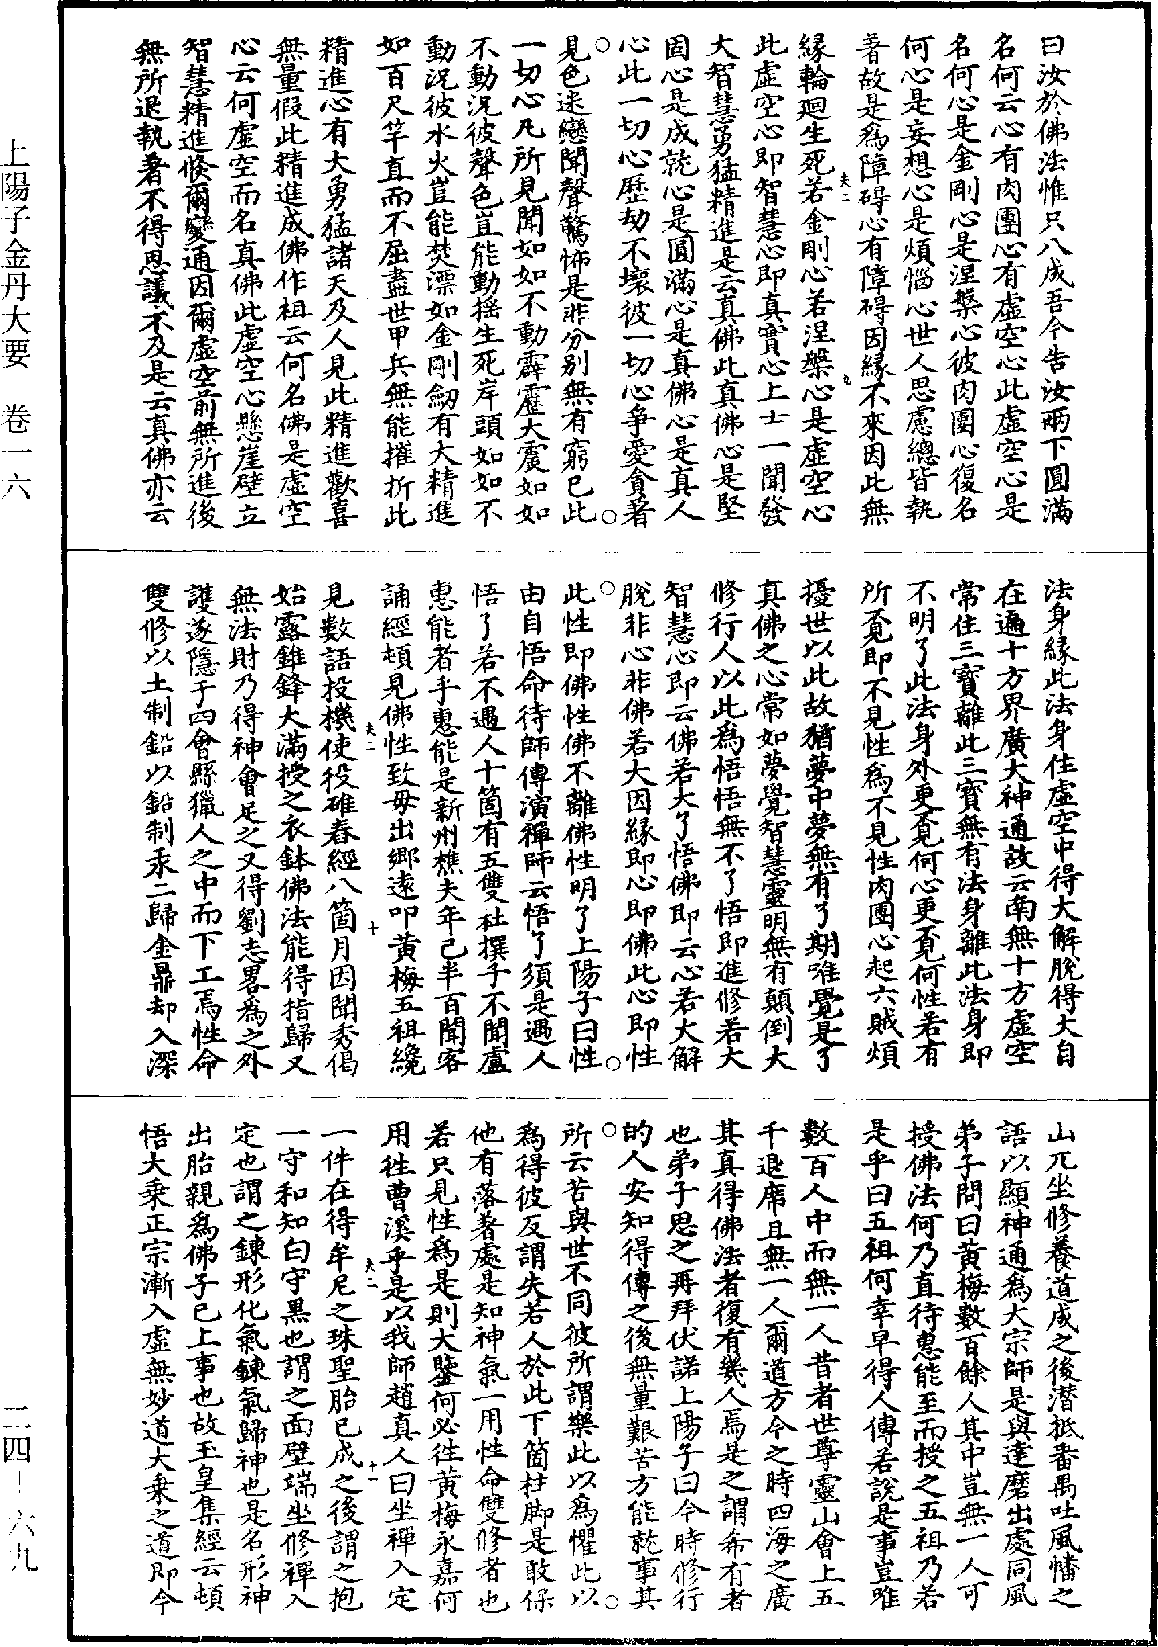 上陽子金丹大要　卷一六
二四—六九
曰汝於佛法惟只八成吾今告汝兩下圓滿
名何云心有肉團心有虛空心此虛空心是
名何心是金剛心是涅槃心彼肉團心復名
何心是妄想心是煩惱心世人思慮總皆執
著故是為障碍心有障碍因緣不來因此無
緣輪廻生死若金剛心若涅槃心是虛空心
此虛空心即智慧心即真實心上士一聞發
大智慧勇猛精進是云真佛此真佛心是堅
固心是成就心是圓滿心是真佛心是真人
心此一切心歷劫不壞彼一切心爭愛貪著
見色迷戀聞聲驚怖是非分別無有窮已此
一切心凡所見聞如如不動霹靂大震如如
不動況彼聲色豈能動搖生死岸頭如如不
動況彼水火豈能焚漂如金剛劒有大精進
如百尺竿直而不屈盡世甲兵無能摧折此
精進心有大勇猛諸天及人見此精進歡喜
無量假此精進成佛作祖云何名佛是虛空
心云何虛空而名真佛此虛空心懸崖壁立
智慧精進倏爾變通因爾虛空前無所進後
無所退執著不得思議不及是云真佛亦云
法身緣此法身住虛空中得大解脫得大自
在遍十方界廣大神通故云南無十方虛空
常住三寶離此三寶無有法身離此法身即
不明了此法身外更覓何心更覓何性若有
所覓即不見性為不見性肉團心起六賊煩
擾世以此故猶夢中夢無有了期唯覺是了
真佛之心常如夢覺智慧靈明無有顛倒大
修行人以此為悟悟無不了悟即進修若大
智慧心即云佛若大了悟佛即云心若大解
脫非心非佛若大因緣即心即佛此心即性
此性即佛性佛不離佛性明了上陽子曰性
由自悟命待師傳演禪師云悟了須是遇人
悟了若不遇人十箇有五雙杜撰子不聞盧
惠能者乎惠能是新州樵夫年已半百聞客
誦經頓見佛性致毋出鄉遠叩黃梅五祖纔
見數語投機使役碓舂經八箇月因聞秀偈
始露錐鋒大滿授之衣鉢佛法能得指歸又
無法財乃得神會足之又得劉志畧為之外
護遂隱于四會縣獵人之中而下工焉性命
雙修以土制鉛以鉛制汞二歸金鼎却入深
山兀坐修養道成之後潛抵番禺吐風幡之
語以顯神通為大宗師是與達磨出處同風
弟子問曰黃梅數百餘人其中豈無一人可
授佛法何乃直待惠能至而授之五祖乃若
是乎曰五祖何幸早得人傳若說是事豈唯
數百人中而無一人昔者世尊靈山會上五
千退席且無一人爾道方今之時四海之廣
其真得佛法者復有幾人焉是之謂希有者
也弟子思之再拜伏諾上陽子曰今時修行
的人安知得傳之後無量艱苦方能就事其
所云苦與世不同彼所謂樂此以為懼此以
為得彼反謂失若人於此下箇柱脚是敢保
他有落著處是知神氣一用性命雙修者也
若只見性為是則大鑒何必徃黃梅永嘉何
用徃曹溪乎是以我師趙真人曰坐禪入定
一件在得牟尼之珠聖胎已成之後謂之抱
一守和知白守黑也謂之面壁端坐修禪入
定也謂之鍊形化氣鍊氣歸神也是名形神
出胎親為佛子已上事也故玉皇集經云頓
悟大乘正宗漸入虛無妙道大乘之道即今